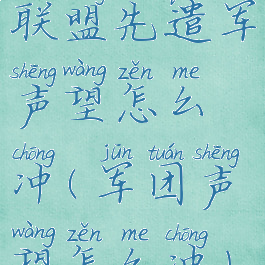 联盟先遣军
shēng wàng zěn me
声望怎么
chōng jūn tuán shēng
冲(军团声
wàng zěn me chōng
望怎么冲)